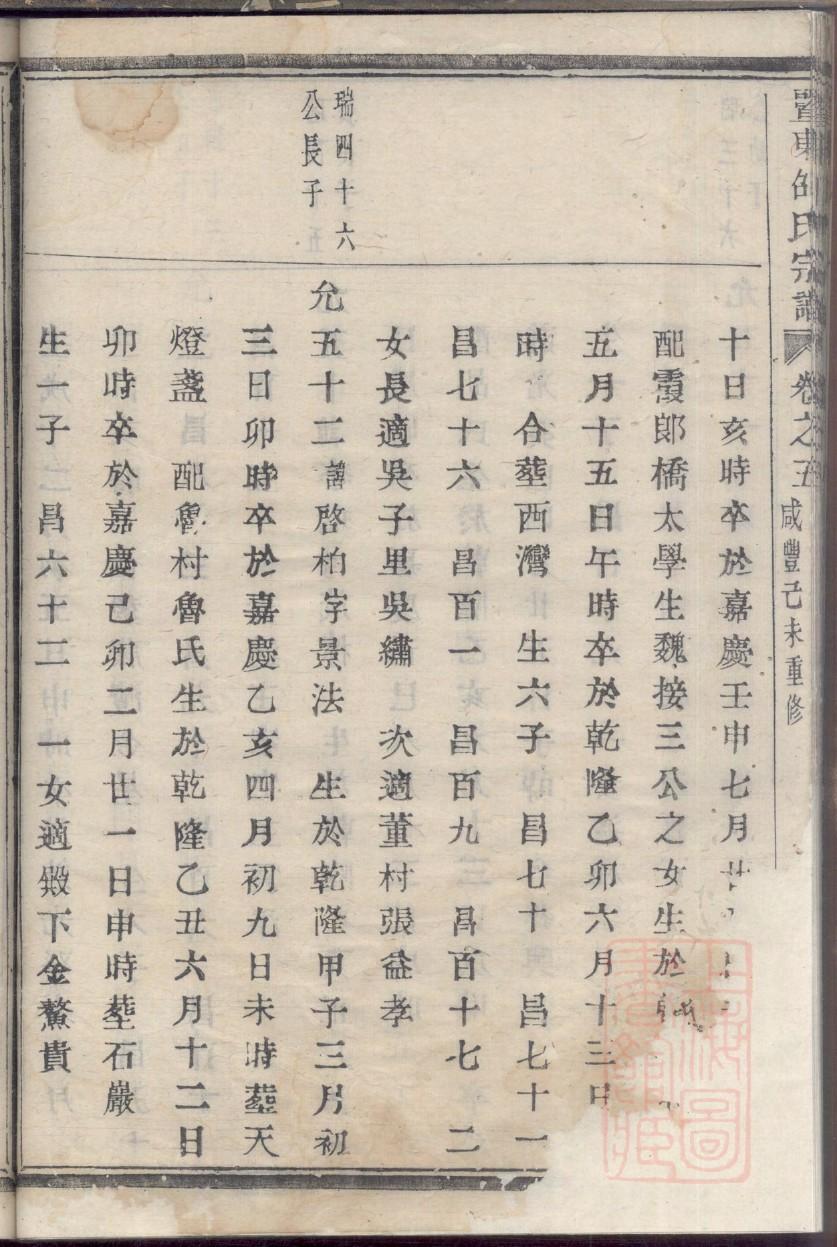 暨東何氏宗譜 卷之五 咸豐己未重修
十日亥時卒於嘉慶壬申七月廿
配霞郎橋太學生魏接三公之女生於乾
五月十五日午時卒於乾隆乙卯六月十三日
時 合塟西灣 生六子 昌七十 昌七十一
昌七十六 昌百一 昌百九 昌百十七 二
女長適吳子里吳繡 次適董村張益孝
瑞四十六
公長子
允五十二諱啓柏字景法 生於乾隆甲子三月初
三日卯時卒於嘉慶乙亥四月初九日未時塟天
燈盞 配魯村魯氏生於乾隆乙丑六月十二日
卯時卒於嘉慶己卯二月廿一日申時塟石巖
生一子 昌六十二 一女適殿下金鰲貴
上海圖書館藏